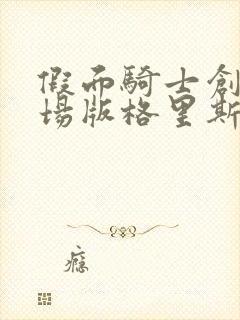 假面騎士創
場版格里斯
瘾